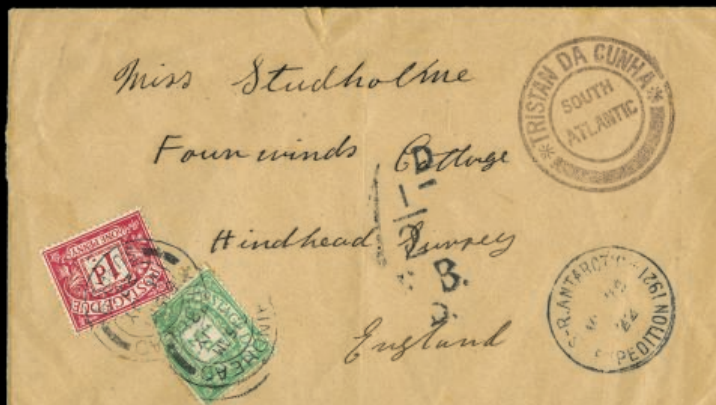 Miss Studholme
Fourwinds Cottage
Hindhead Surrey
England
TRISTAN DA CUNHA
SOUTH ATLANTIC
S-R. ANTARCTIC EXPEDITION 1921
D
1
B.
POSTAGE DUE
1d
ONE PENNY
POSTAGE
HINDHEAD